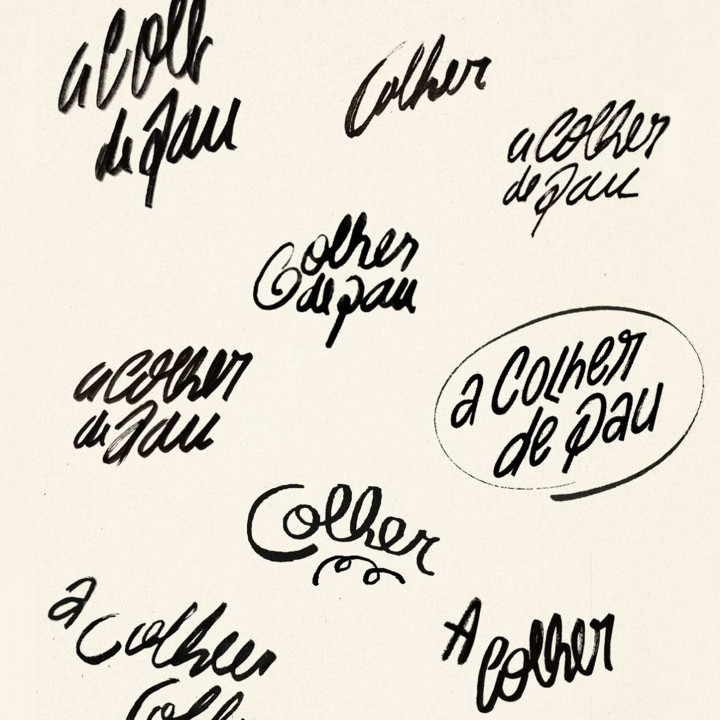 a Colh
de pau
Colher
a Colher
de pau
Colher
de pau
a Colher
de pau
a Colher
de pau
Colher
a Colher
A
Colher
Colh